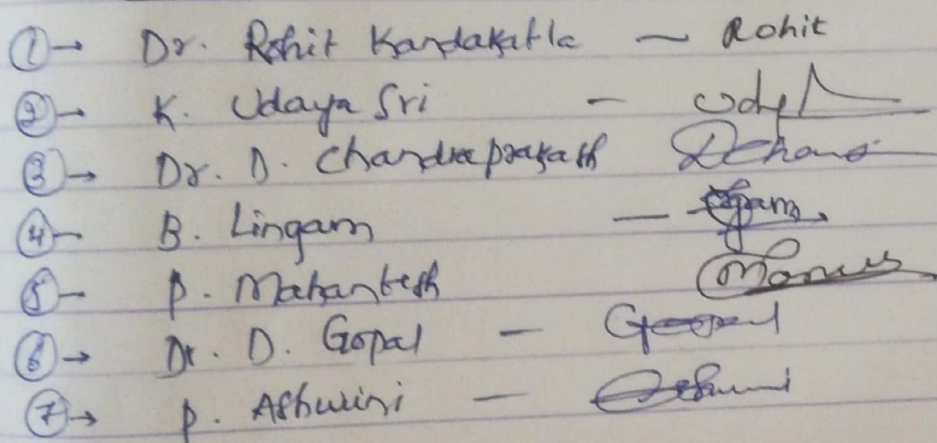 ① → Dr. Rohit Kandakatla — Rohit
② → K. Udaya Sri —
③ → Dr. D. Chandraprakash
④ — B. Lingam —
⑤ — P. Mahantesh
⑥ → Dr. D. Gopal — Gopal
⑦ → P. Ashwini —